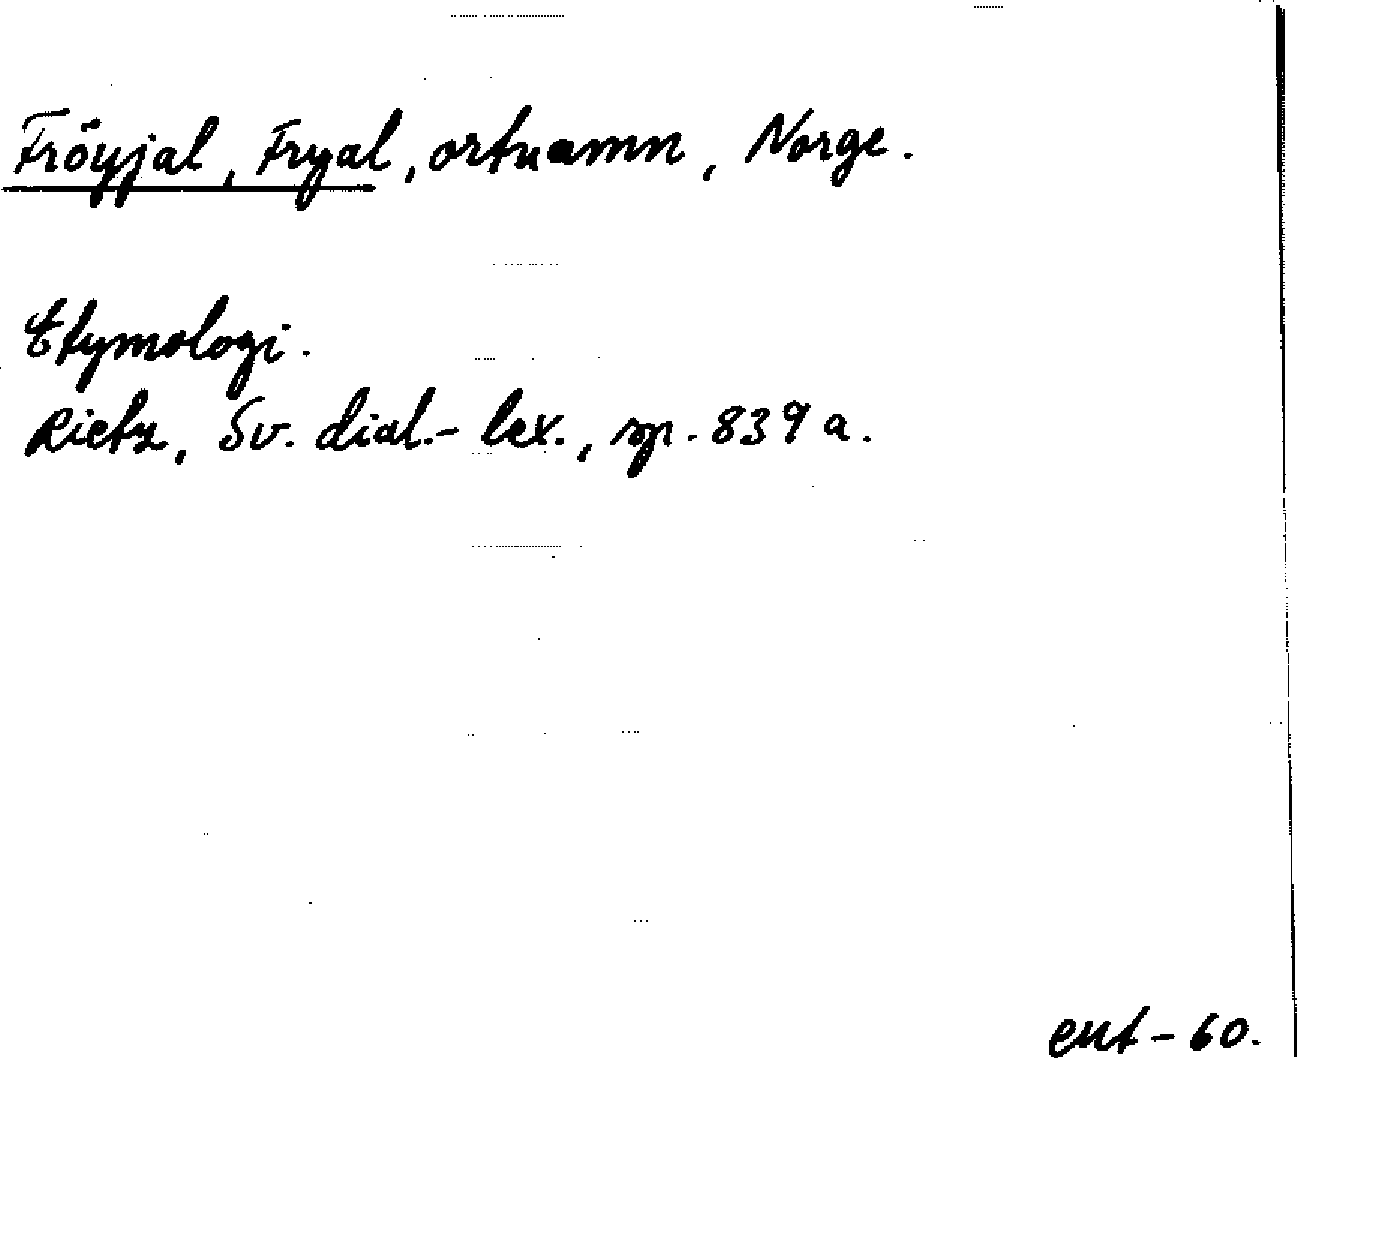 Fröyjal, Fryal, ortnamn, Norge.
Etymologi.
Rietz, Sv. dial.-lex., sp. 839 a.
ent-60.